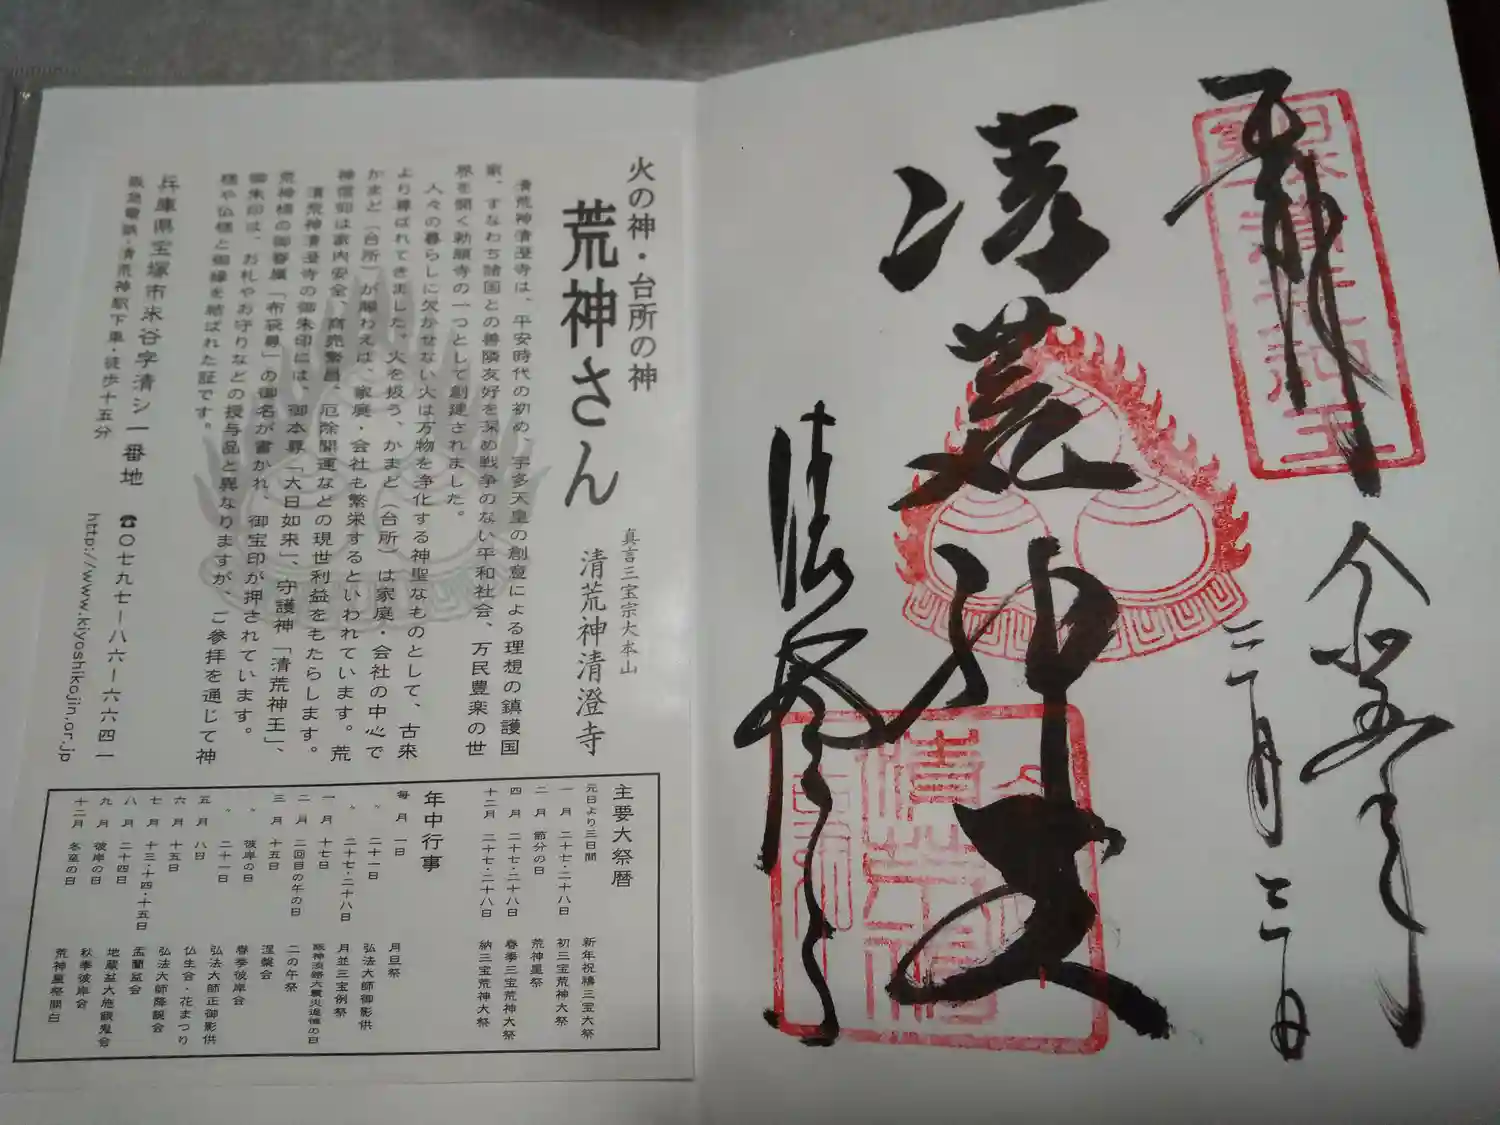 奉拝
令和五年
三月三日
清荒神王
清澄寺
日本第一清荒神王
火の神・台所の神
荒神さん
真言三宝宗大本山
清荒神清澄寺
清荒神清澄寺は、平安時代の初め、宇多天皇の創意による理想の鎮護国
家、すなわち諸国との善隣友好を深め戦争のない平和社会、万民豊楽の世
界を開く勅願寺の一つとして創建されました。
人々の暮らしに欠かせない火は万物を浄化する神聖なものとして、古来
より尊ばれてきました。火を扱う、かまど（台所）は家庭・会社の中心で
かまど（台所）が賑わえば、家庭・会社も繁栄するといわれています。荒
神信仰は家内安全、商売繁昌、厄除開運などの現世利益をもたらします。
清荒神清澄寺の御朱印には、御本尊「大日如来」、守護神「清荒神王」、
荒神様の御眷属「布袋尊」の御名が書かれ、御宝印が押されています。
御朱印は、お札やお守りなどの授与品と異なりますが、ご参拝を通じて神
様や仏様と御縁を結ばれた証です。
兵庫県宝塚市米谷字清シ一番地 ☎〇七九七－八六－六六四一
阪急電鉄・清荒神駅下車・徒歩十五分 http://www.kiyoshikojin.or.jp
主要大祭暦
元日より三日間 新年祝祷三宝大祭
一月 二十七・二十八日 初三宝荒神大祭
二月 節分の日 荒神星祭
四月 二十七・二十八日 春季三宝荒神大祭
十二月 二十七・二十八日 納三宝荒神大祭
年中行事
毎月 一日 月旦祭
〃 二十一日 弘法大師御影供
〃 二十七・二十八日 月並三宝例祭
一月 十七日 阪神淡路大震災追悼の日
二月 二回目の午の日 二の午祭
三月 十五日 涅槃会
〃 彼岸の日 春季彼岸会
〃 二十一日 弘法大師正御影供
五月 八日 仏生会・花まつり
六月 十五日 弘法大師降誕会
七月 十三・十四・十五日 盂蘭盆会
八月 二十四日 地蔵盆大施餓鬼会
九月 彼岸の日 秋季彼岸会
十二月 冬至の日 荒神星祭開白